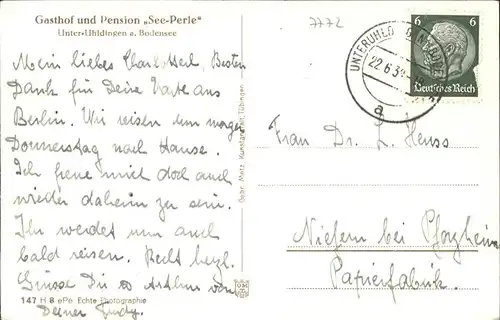 Gasthof und Pension „See-Perle"
Unter-Uhldingen a. Bodensee
Mein liebes Charlotterl, Besten
Dank für Deine Karte aus
Berlin. Wir reisen nun morgen
Donnerstag nach Hause.
Ich freue mich doch auch
wieder daheim zu sein.
Ihr werdet nun auch
bald reisen. Recht herzl.
Grüsse Dir u. Arthur von
Deiner
147 H 8 ePe Echte Photographie
Gebr. Metz Kunstanstalt Tübingen
7772
UNTERUHLD
22.6.3
a
6 6
Deutsches Reich
Frau Dr. L. Heuss
Niefern bei Pforzheim
Papierfabrik.